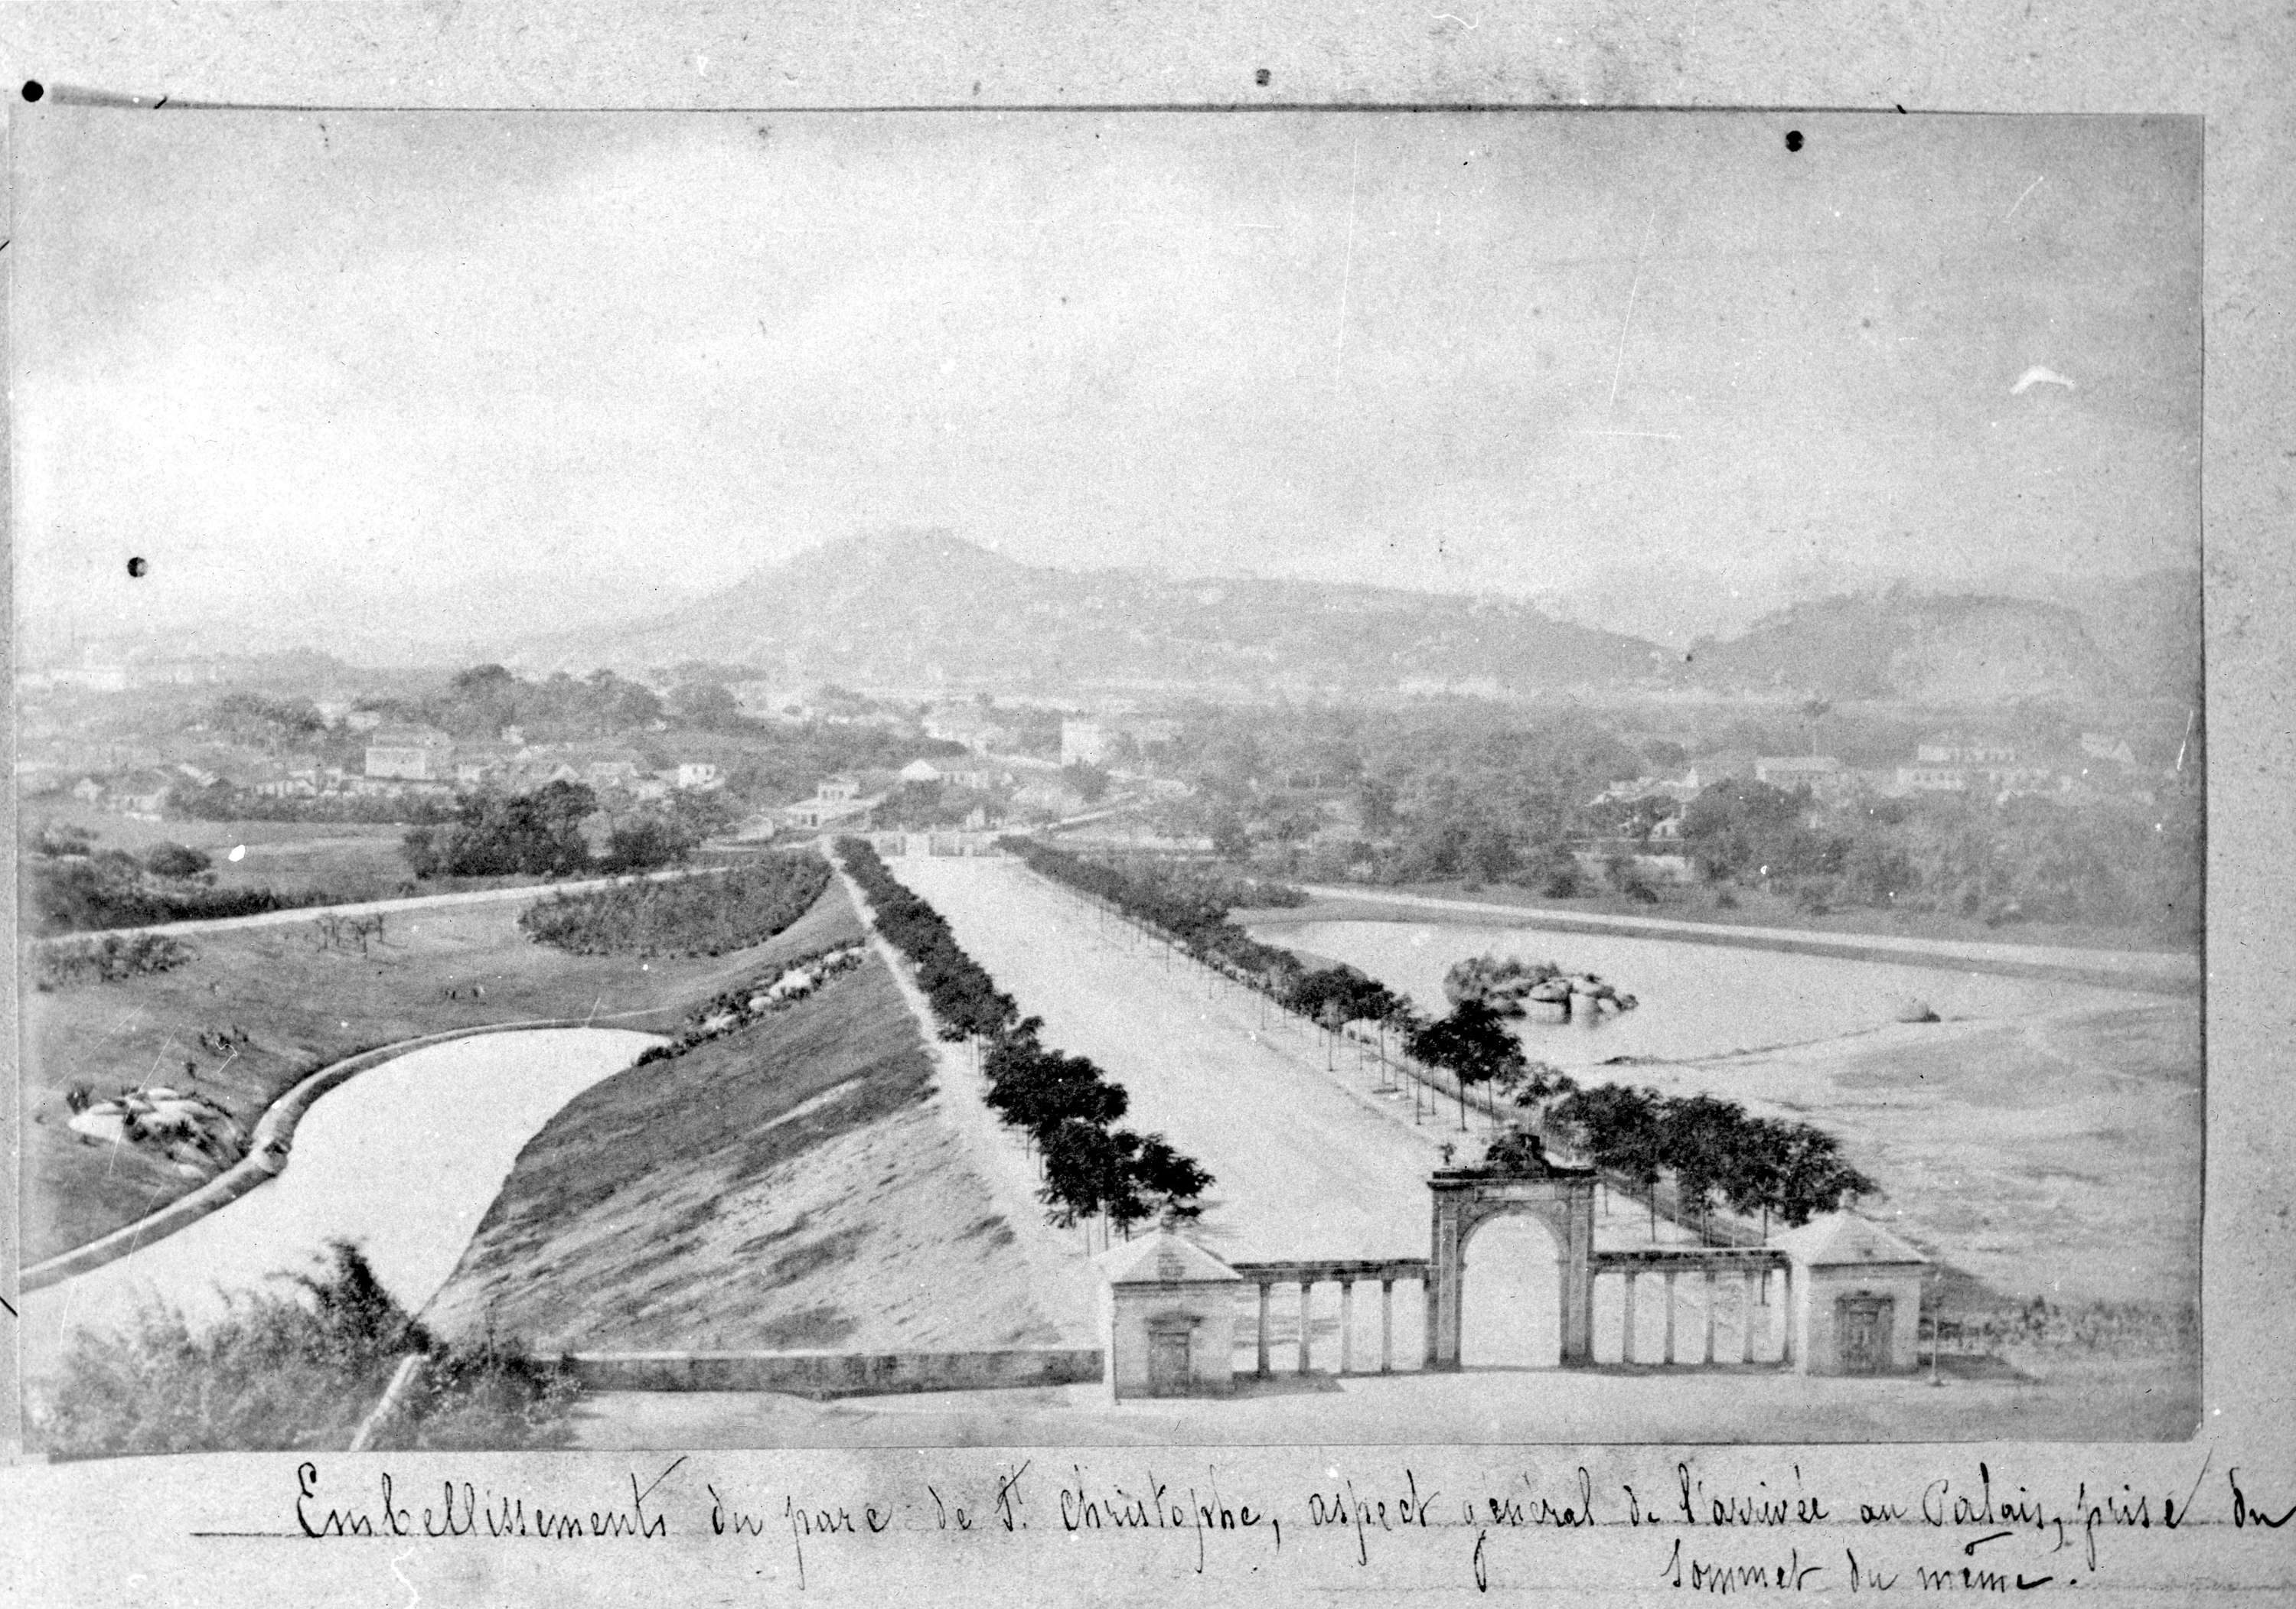 Embellissements du parc de St Christophe, aspect général de l'arrivée au Palais, prise du
sommet du même.